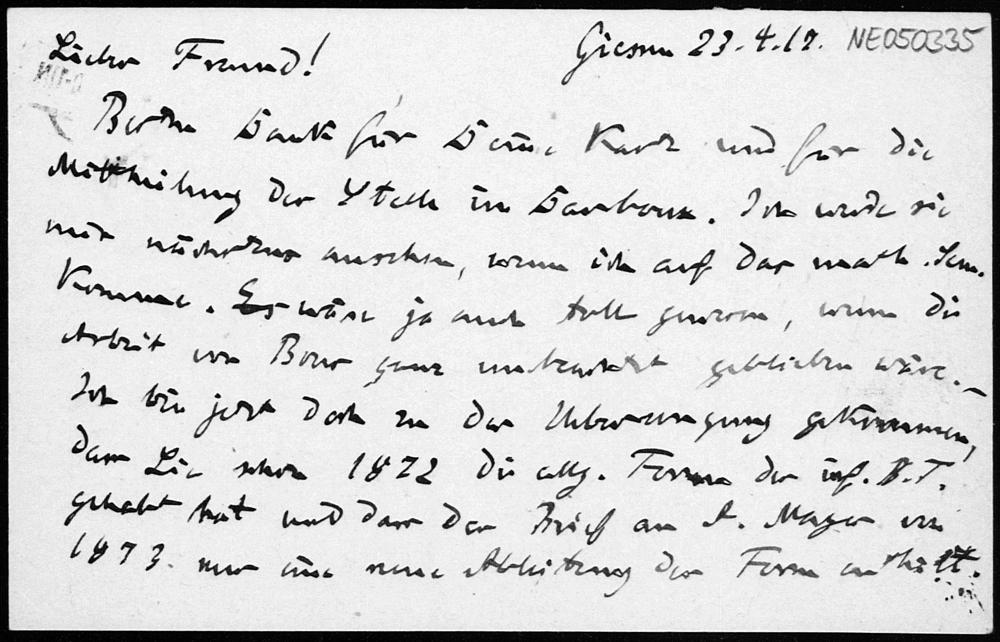 Giessen 23.4.19. NE050335
Lieber Freund!
Besten Dank für Deine Karte und für die
Mittheilung der Stelle in Darboux. Ich werde sie
mir nächstens ansehen, wenn ich auf das math. Sem.
komme. Es wäre ja auch toll gewesen, wenn die
Arbeit von Bour ganz unbeachtet geblieben wäre. –
Ich bin jetzt doch zu der Ueberzeugung gekommen,
dass Lie schon 1872 die allg. Form der inf. B.T.
gehabt hat und dass der Brief an A. Mayer von
1873. nur eine neue Ableitung der Form enthält.